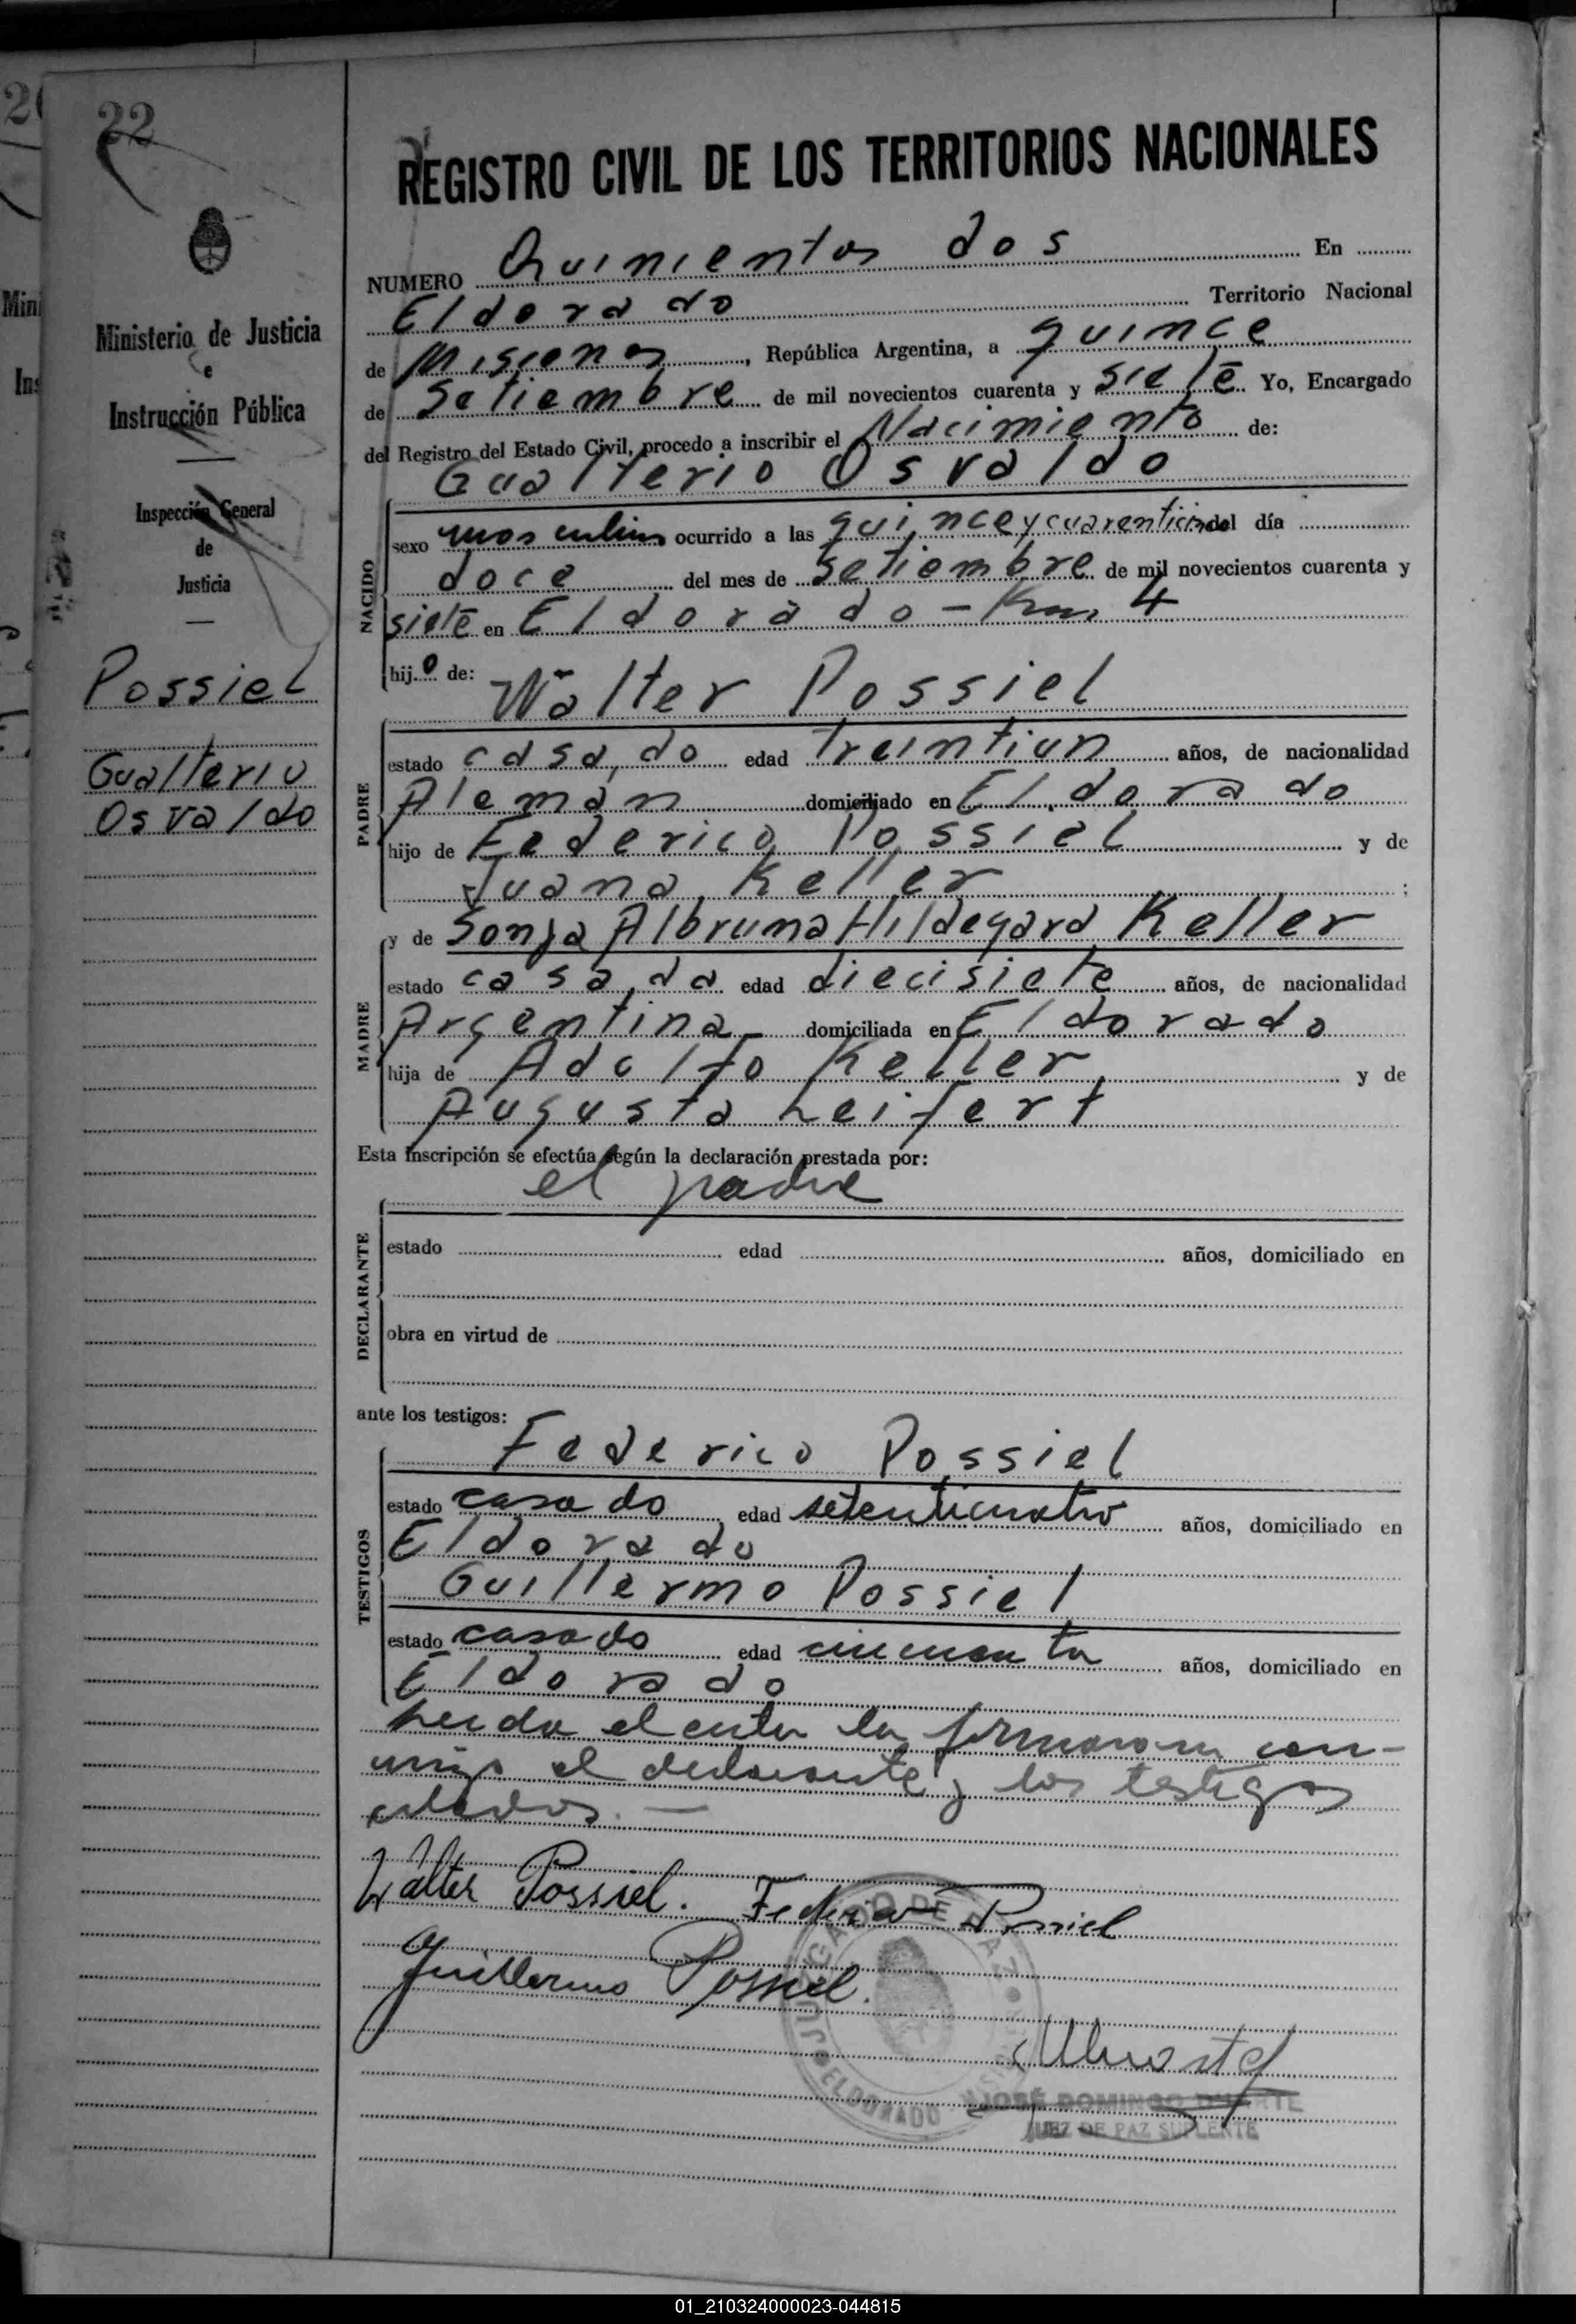 22
Ministerio de Justicia
e
Instrucción Pública
Inspección General
de
Justicia
Possiel
Gualterio
Osvaldo
REGISTRO CIVIL DE LOS TERRITORIOS NACIONALES
NUMERO Quinientos dos En
Eldorado Territorio Nacional
de Misiones, República Argentina, a quince
de Setiembre de mil novecientos cuarenta y siete Yo, Encargado
del Registro del Estado Civil, procedo a inscribir el Nacimiento de:
Gualterio Osvaldo
NACIDO
sexo masculino ocurrido a las quince y cuarenticinco del día
doce del mes de Setiembre de mil novecientos cuarenta y
siete en Eldorado - Km 4
hijo de: Walter Possiel
PADRE
estado casado edad treintiun años, de nacionalidad
Alemán domiciliado en Eldorado
hijo de Federico Possiel y de
Juana Keller;
MADRE
y de Sonja Albruna Hildegard Keller
estado casada edad diecisiete años, de nacionalidad
Argentina domiciliada en Eldorado
hija de Adolfo Keller y de
Augusta Leifert
Esta inscripción se efectúa según la declaración prestada por:
el padre
DECLARANTE
estado edad años, domiciliado en
obra en virtud de
ante los testigos:
TESTIGOS
Federico Possiel
estado casado edad setenticuatro años, domiciliado en
Eldorado
Guillermo Possiel
estado casado edad cincuenta años, domiciliado en
Eldorado
Leida el acta la firmaron con-
migo el declarante y los testigos
citados. —
Walter Possiel. Federico Possiel
Guillermo Possiel.
JUZGADO DE PAZ
ELDORADO
JOSÉ DOMINGO DUARTE
JUEZ DE PAZ SUPLENTE
01_210324000023-044815